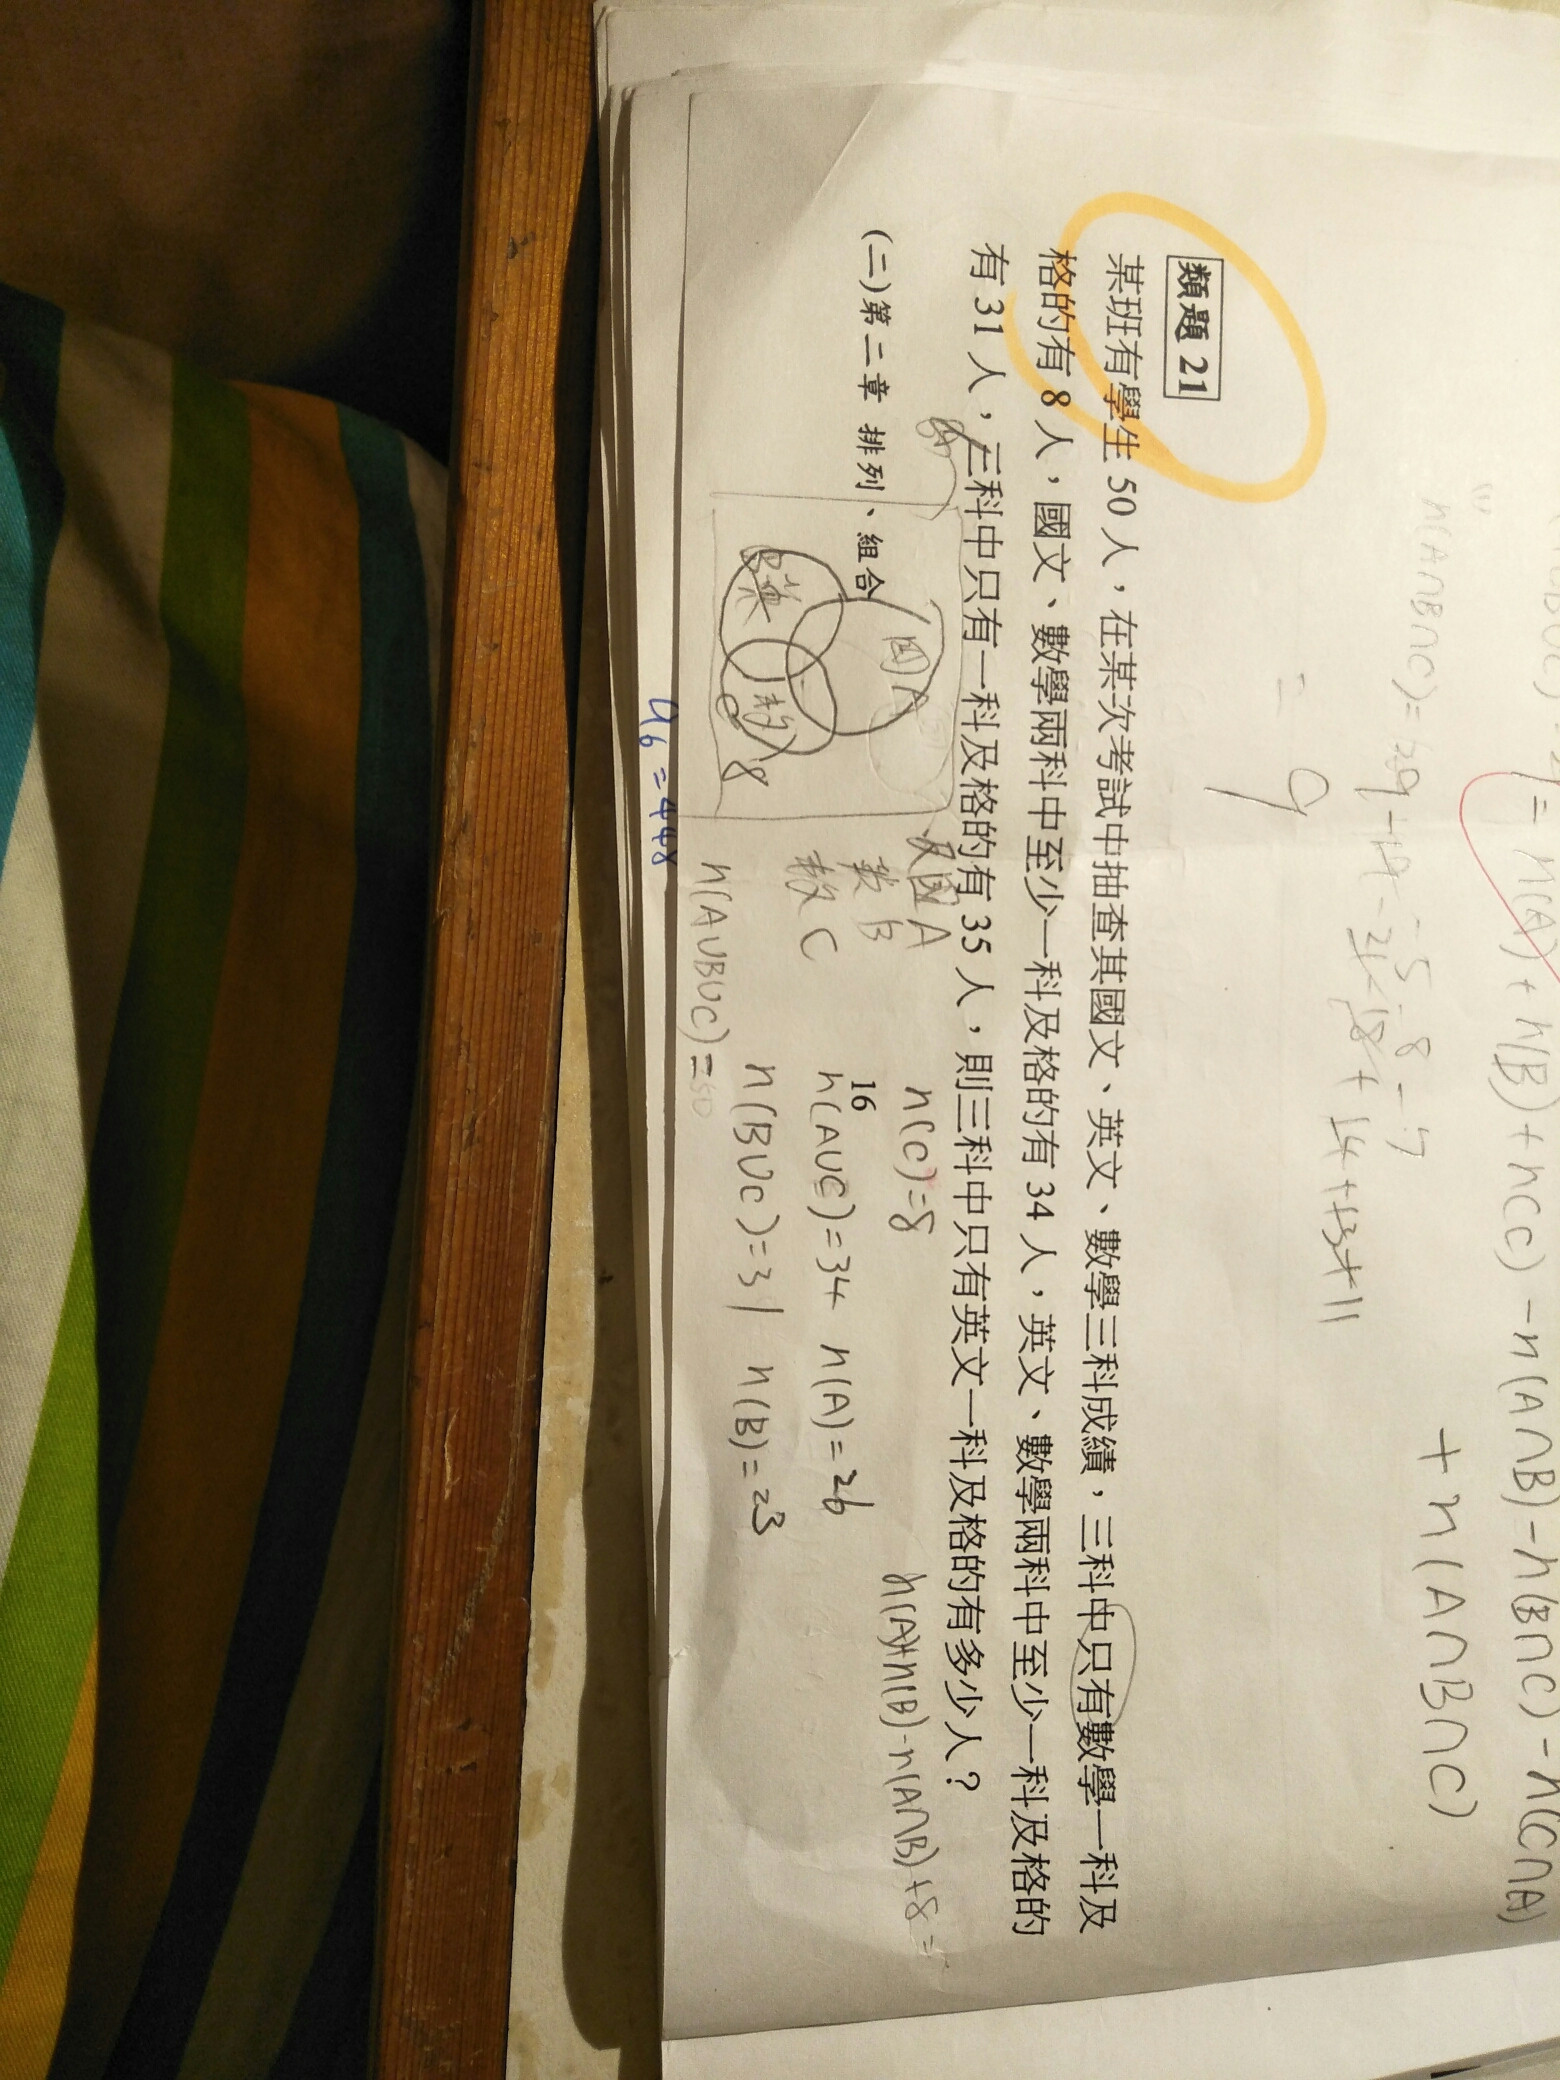 = n(A) + n(B) + n(C) - n(A∩B) - n(B∩C) - n(C∩A)
+ n(A∩B∩C)
(1)
n(A∩B∩C) = 29
= 9
類題 21
某班有學生 50 人，在某次考試中抽查其國文、英文、數學三科成績，三科中只有數學一科及
格的有 8 人，國文、數學兩科中至少一科及格的有 34 人，英文、數學兩科中至少一科及格的
有 31 人，三科中只有一科及格的有 35 人，則三科中只有英文一科及格的有多少人？
國A
B英
數
C
8
國 A
英 B
數 C
n(C)=8
n(A∪C)=34 n(A)=26
n(B∪C)=31 n(B)=23
n(A∪B∪C)=50
n(A)+n(B)-n(A∩B)+8=
(二)第二章 排列、組合
16
96=448